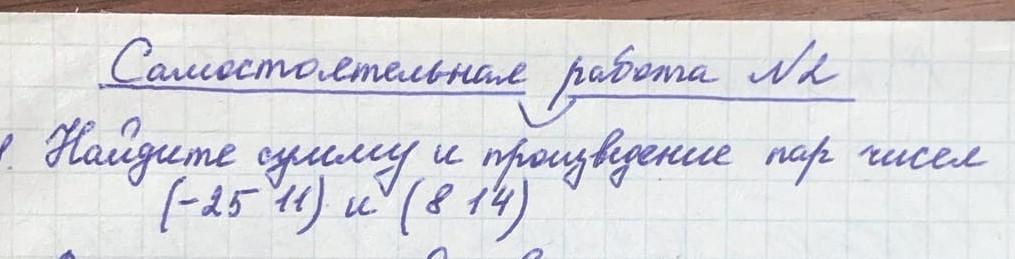 Самостоятельная работа №2
1. Найдите сумму и произведение пар чисел
(-25 11) и (8 14)